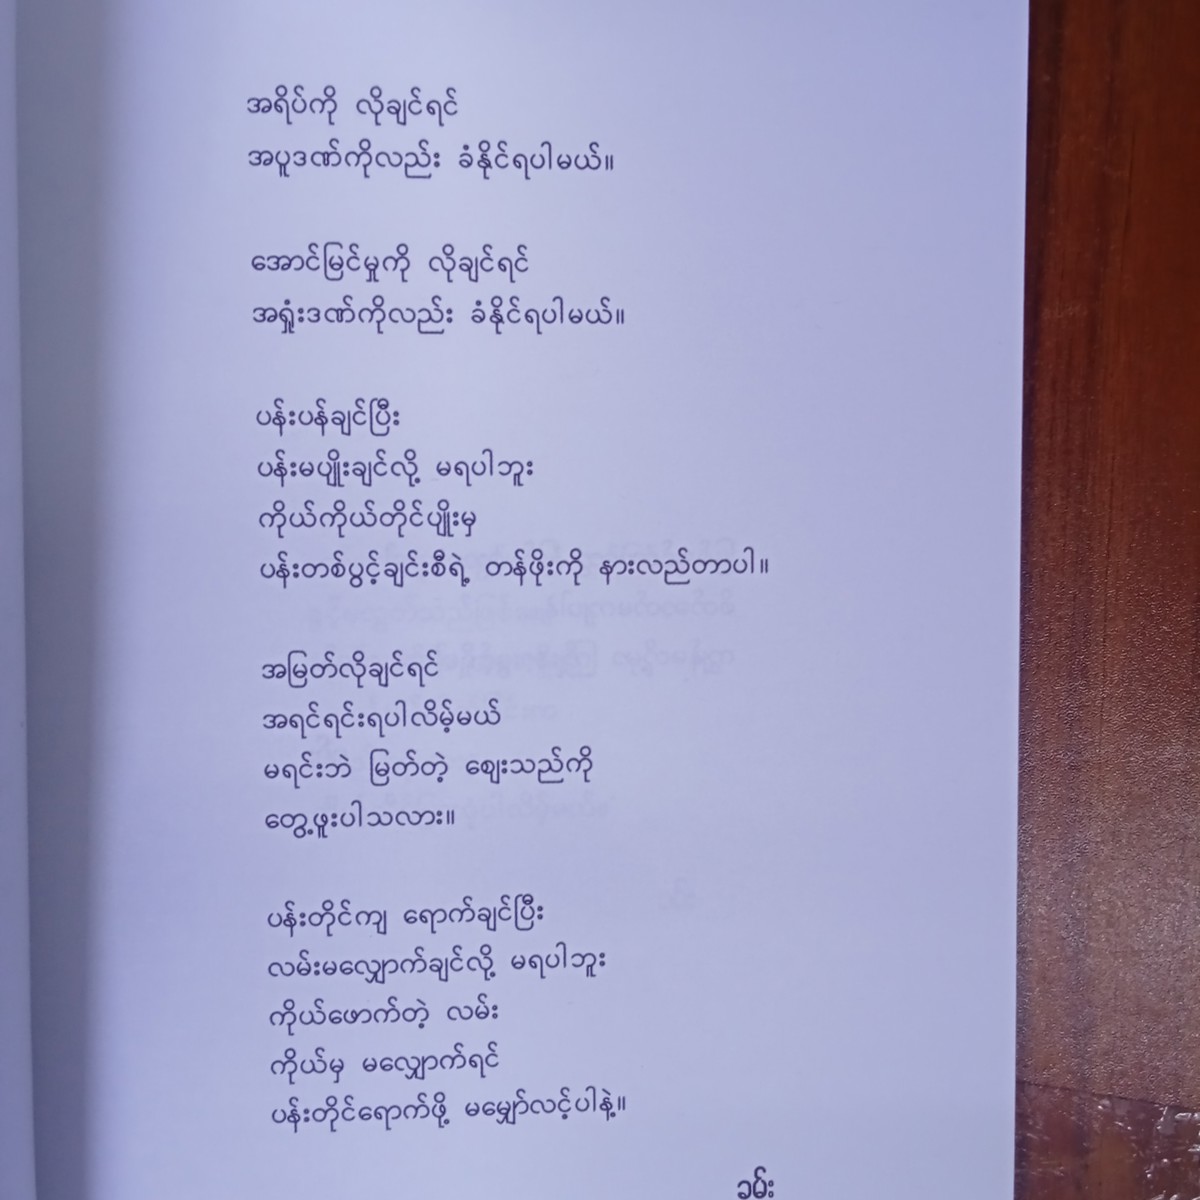 အရိပ်ကို လိုချင်ရင်
အပူဒဏ်ကိုလည်း ခံနိုင်ရပါမယ်။
အောင်မြင်မှုကို လိုချင်ရင်
အရှုံးဒဏ်ကိုလည်း ခံနိုင်ရပါမယ်။
ပန်းပန်ချင်ပြီး
ပန်းမပျိုးချင်လို့ မရပါဘူး
ကိုယ်ကိုယ်တိုင်ပျိုးမှ
ပန်းတစ်ပွင့်ချင်းစီရဲ့ တန်ဖိုးကို နားလည်တာပါ။
အမြတ်လိုချင်ရင်
အရင်ရင်းရပါလိမ့်မယ်
မရင်းဘဲ မြတ်တဲ့ ဈေးသည်ကို
တွေ့ဖူးပါသလား။
ပန်းတိုင်ကျ ရောက်ချင်ပြီး
လမ်းမလျှောက်ချင်လို့ မရပါဘူး
ကိုယ်ဖောက်တဲ့ လမ်း
ကိုယ်မှ မလျှောက်ရင်
ပန်းတိုင်ရောက်ဖို့ မမျှော်လင့်ပါနဲ့။
ခမ်း